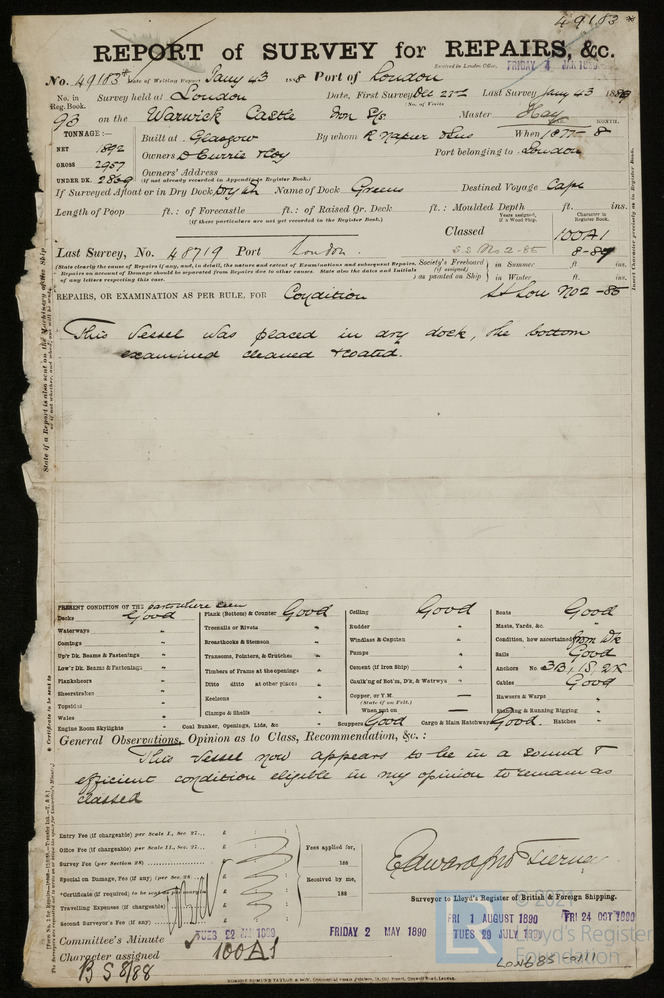 49183 *
REPORT of SURVEY for REPAIRS, &c.
Received in London Office, FRIDAY 4 JAN 1889
No. 49183* Date of Writing Report Jany 4 3 188 8 Port of London
No. in Reg. Book. Survey held at London Date, First Survey Dec 27th Last Survey Jany 4 3 1889
No. of Visits
93 on the Warwick Castle Iron S/s Master Hay
TONNAGE :— Built at Glasgow By whom R Napier & Sons When 1877 - 8
MONTH.
NET 1892 Owners D Currie & Coy Port belonging to London
GROSS 2957 Owners' Address
(if not already recorded in Appendix to Register Book.)
UNDER DK. 2860
If Surveyed Afloat or in Dry Dock Dry dk Name of Dock Greens Destined Voyage Cape
Length of Poop ft.: of Forecastle ft.: of Raised Qr. Deck ft.: Moulded Depth ft. ins.
(if these particulars are not yet recorded in the Register Book.)
Years assigned, if a Wood Ship. Character in Register Book.
Classed 100A1
Last Survey, No. 48719 Port London. S.S. No 2-85 8-87
(State clearly the cause of Repairs if any, and, in detail, the nature and extent of Examinations and subsequent Repairs.
Repairs on account of Damage should be separated from Repairs due to other causes. State also the dates and Initials
of any letters respecting this case.
Society's Freeboard (if assigned) as painted on Ship } in Summer ft ins.
in Winter ft. ins.
REPAIRS, OR EXAMINATION AS PER RULE, FOR Condition SS Lon No 2 -85
This Vessel was placed in dry dock, the bottom
examined cleaned & coated.
PRESENT CONDITION OF THE particulars seen
Decks Good
Waterways "
Comings "
Up'r Dk. Beams & Fastenings "
Low'r Dk. Beams & Fastenings "
Planksheers "
Sheerstrakes "
Topsides "
Wales "
Engine Room Skylights "
Plank (Bottom) & Counter Good
Treenails or Rivets "
Breasthooks & Stemson "
Transoms, Pointers, & Crutches "
Timbers of Frame at the openings "
Ditto ditto at other places "
Keelsons "
Clamps & Shells "
Coal Bunker, Openings, Lids, &c "
Ceiling Good
Rudder "
Windlass & Capstan "
Pumps "
Cement (if Iron Ship) "
Caulk'g of Bot'm, D'k, & Watrwys "
Copper, or Y.M. —
(State if on Felt.)
When put on —
Scuppers Good Cargo & Main Hatchways Good
Boats Good
Masts, Yards, &c. "
Condition, how ascertained from Dk
Sails Good
Anchors No. 3B, 1S, 2K
Cables Good
Hawsers & Warps "
Standing & Running Rigging "
Hatches "
General Observations, Opinion as to Class, Recommendation, &c. :
This Vessel now appears to be in a sound &
efficient condition eligible in my opinion to remain as
classed
Entry Fee (if chargeable) per Scale I., Sec. 27... £
Office Fee (if chargeable) per Scale II., Sec. 27... £
Survey Fee (per Section 28) £
Special on Damage, Fee (if any) (per Sec. 28 £
*Certificate (if required) to be sent
Travelling Expenses (if chargeable) £
Second Surveyor's Fee (if any) £
Fees applied for,
188
Received by me,
188
Edward Jno Turner
Surveyor to Lloyd's Register of British & Foreign Shipping.
© 2021
Lloyd's Register
Foundation
FRI 1 AUGUST 1890 FRI 24 OCT 1890
Committee's Minute TUES 22 JAN 1889 FRIDAY 2 MAY 1890 TUES 29 JULY 1890
Character assigned 100A1
B S 8/88